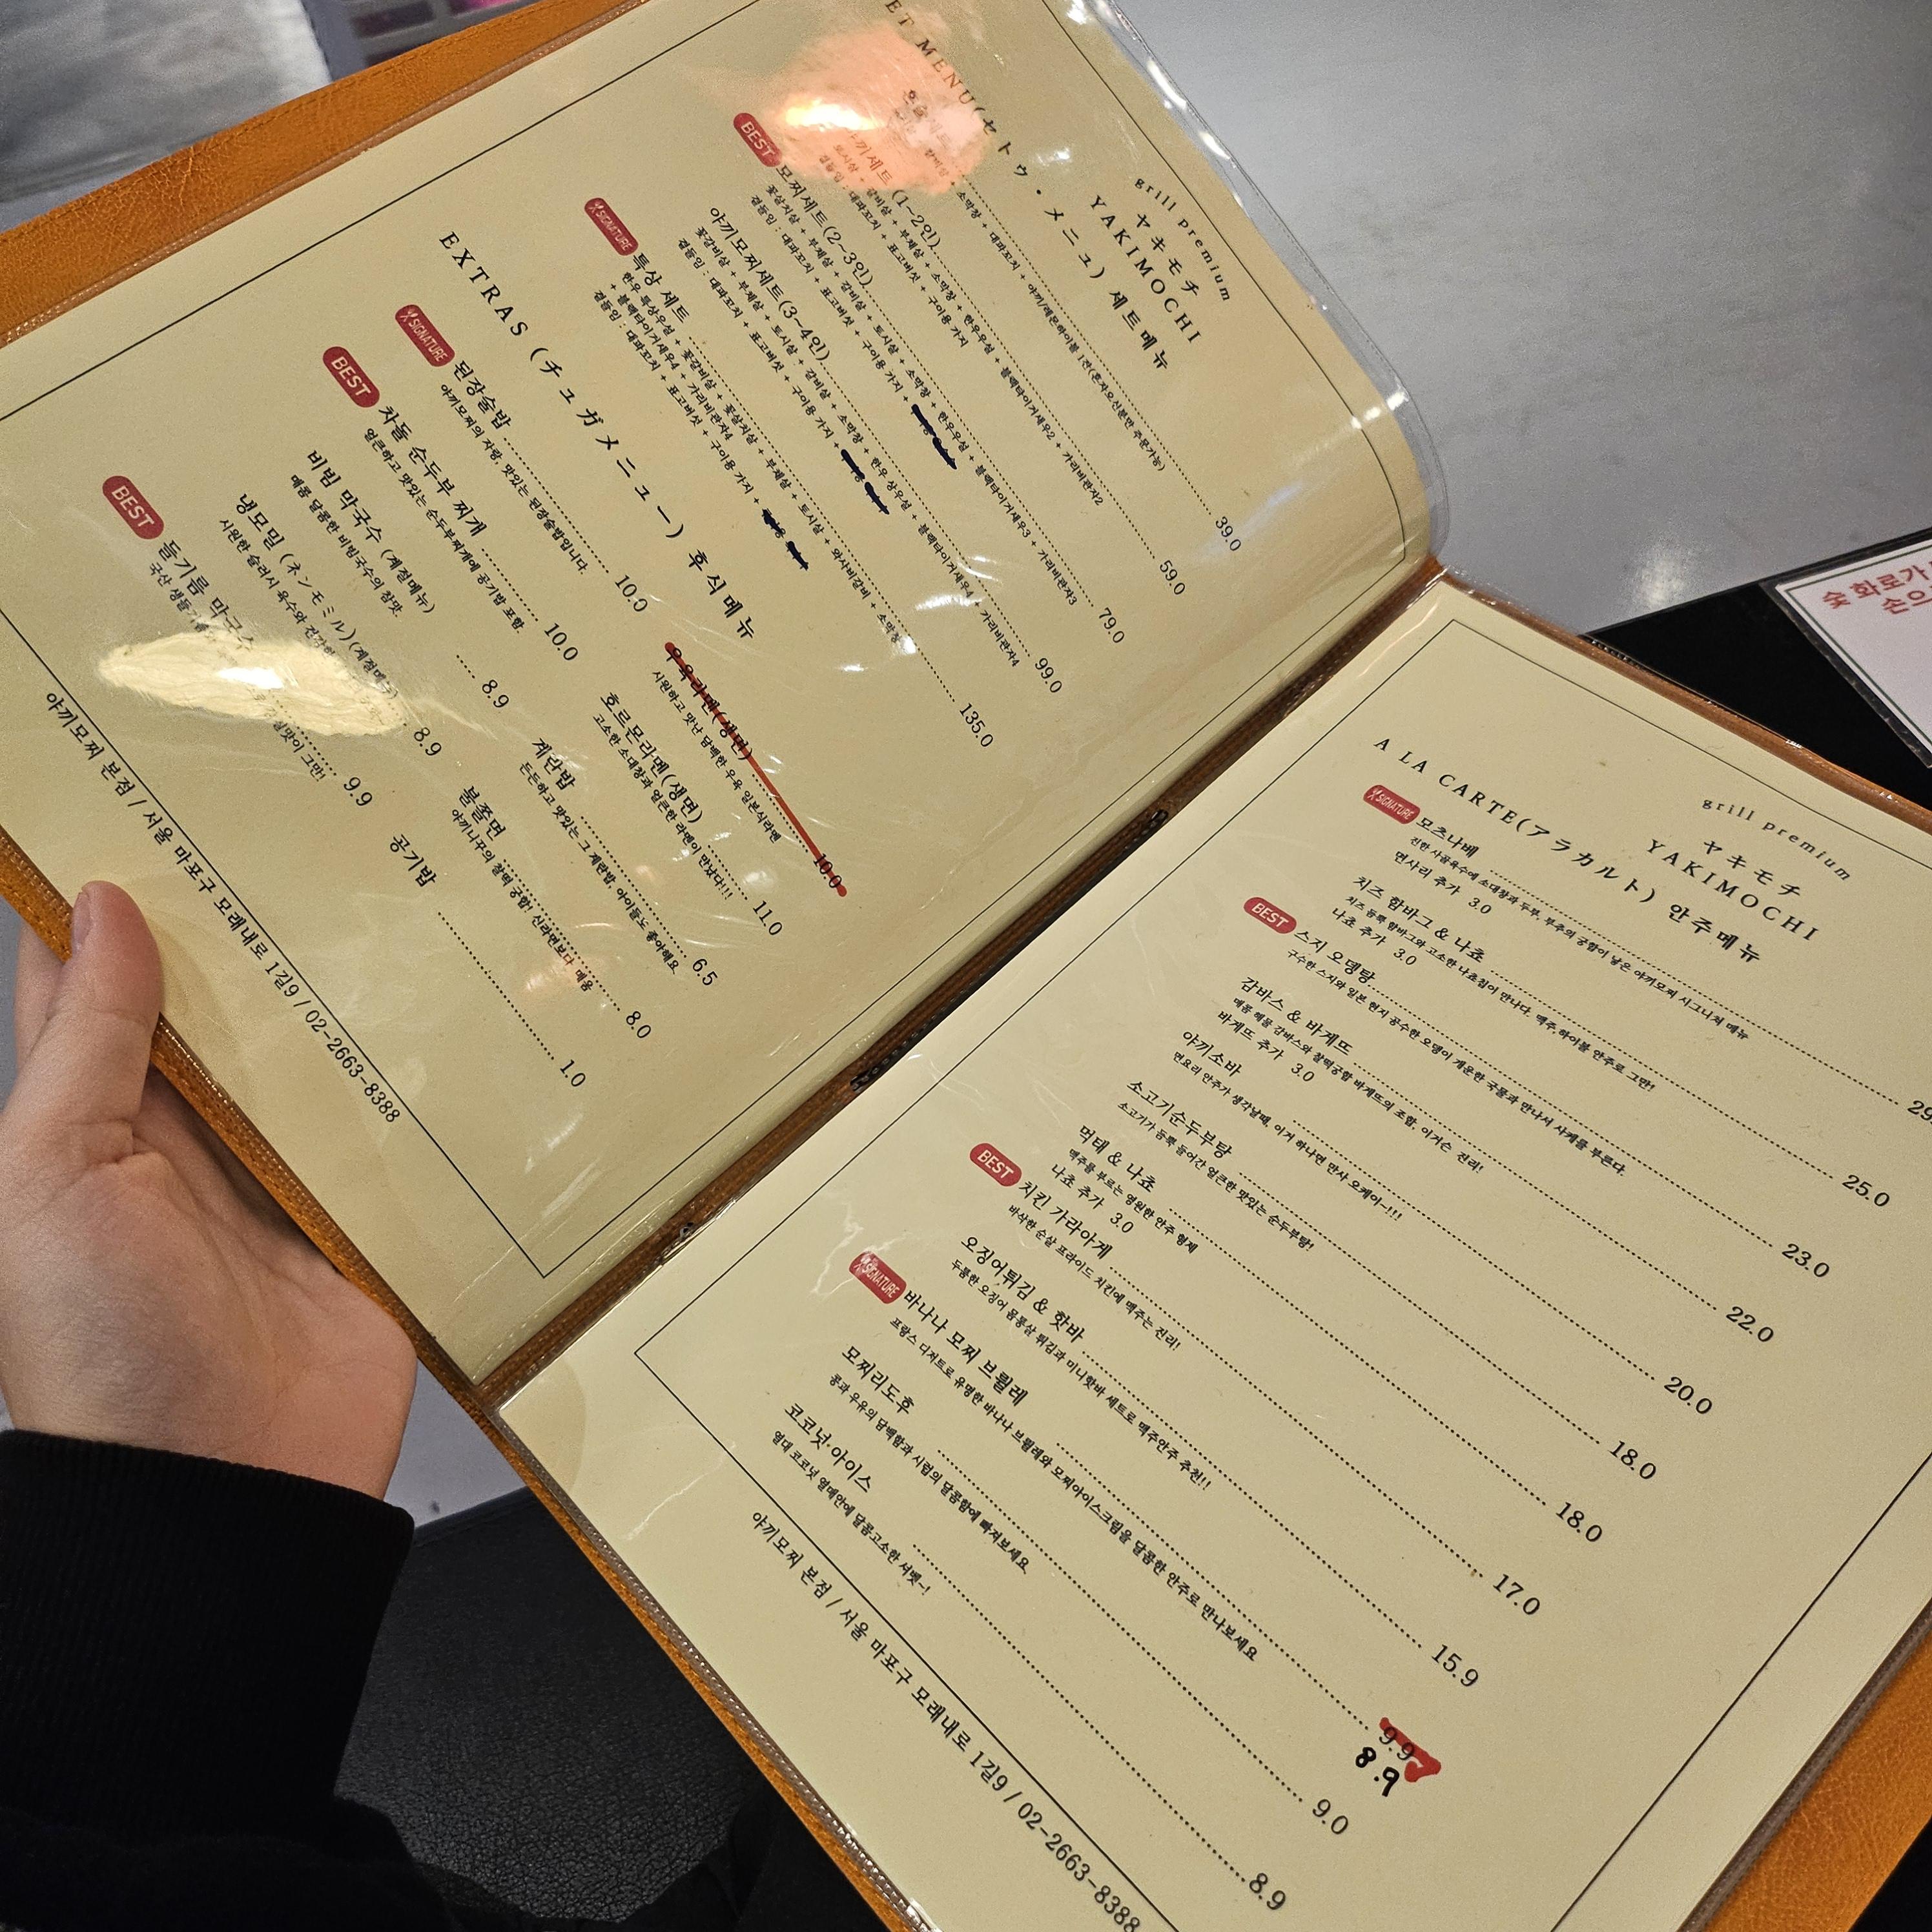 grill premium
ヤキモチ
YAKIMOCHI
ET MENU(セトゥ・メニュ) 세트메뉴
소막창 + 대파꼬치 + 야끼/레몬하이볼 1잔(혼자오신분만 주문가능)
39.0
끼세트 (1~2인)
토시살 + 갈비살 + 부채살 + 소막창 + 한우우설 + 블랙타이거새우2 + 가리비관자2
곁들임 : 대파꼬치 + 표고버섯 + 구이용 가지
59.0
BEST
모찌세트(2~3인)
꽃살치살 + 부채살 + 갈비살 + 토시살 + 소막창 + 한우우설 + 블랙타이거새우3 + 가리비관자3
곁들임 : 대파꼬치 + 표고버섯 + 구이용 가지 +
79.0
야끼모찌세트(3~4인)
꽃갈비살 + 부채살 + 토시살 + 갈비살 + 소막창 + 한우 상우설 + 블랙타이거새우4 + 가리비관자4
곁들임 : 대파꼬치 + 표고버섯 + 구이용 가지 +
99.0
SIGNATURE
특상 세트
한우 특상우설 + 꽃갈비살 + 꽃살치살 + 부채살 + 토시살 + 와사비갈비 + 소막창
+ 블랙타이거새우4 + 가리비관자4
곁들임 : 대파꼬치 + 표고버섯 + 구이용 가지 +
135.0
EXTRAS (チュガメニュー) 후식메뉴
SIGNATURE
된장술밥
10.0
야끼모찌의 자랑, 맛있는 된장술밥입니다.
BEST
차돌 순두부 찌개
10.0
얼큰하고 맛있는 순두부찌개에 공기밥 포함.
비빔 막국수 (계절메뉴)
8.9
매콤 달콤한 비빔국수의 참맛.
냉모밀 (ネンモミル)(계절메뉴)
8.9
시원한 슬러시 육수와
BEST
들기름 막국수
9.9
국산 생들기름
그만!
우육라멘(생면)
10.0
시원하고 맛난 담백한 우육 일본식라멘
호르몬라멘(생면)
11.0
고소한 소대창과 얼큰한 라멘이 만났다!!!
계란밥
6.5
든든하고 맛있는 그 계란밥, 아이들도 좋아해요
불쫄면
8.0
야끼니꾸의 찰떡 궁합! 신라면보다 매움
공기밥
1.0
야끼모찌 본점 / 서울 마포구 모래내로 1길9 / 02-2663-8388
grill premium
ヤキモチ
YAKIMOCHI
A LA CARTE(アラカルト) 안주메뉴
SIGNATURE
모츠나베
29.
진한 사골육수에 소대창과 두부, 부추의 궁합이 낳은 야끼모찌 시그니처 메뉴
면사리 추가 3.0
치즈 함바그 & 나쵸
25.0
치즈 듬뿍 함바그와 고소한 나쵸칩이 만나다. 맥주,하이볼 안주로 그만!
나쵸 추가 3.0
BEST
스지 오뎅탕
23.0
구수한 스지와 일본 현지 공수한 오뎅이 개운한 국물과 만나서 사케를 부른다.
감바스 & 바게뜨
22.0
매콤 해물 감바스와 찰떡궁합 바게뜨의 조합, 이거슨 진리!
바게뜨 추가 3.0
야끼소바
20.0
면요리 안주가 생각날때, 이거 하나면 만사 오케이~!!!
소고기순두부탕
18.0
소고기가 듬뿍 들어간 얼큰한 맛있는 순두부탕!
먹태 & 나쵸
18.0
맥주를 부르는 영원한 안주 형제
나쵸 추가 3.0
BEST
치킨 가라아게
17.0
바삭한 순살 프라이드 치킨에 맥주는 진리!
오징어튀김 & 핫바
15.9
두툼한 오징어 몸통살 튀김과 미니핫바 세트로 맥주안주 추천!!
SIGNATURE
바나나 모찌 브륄레
9.9
8.9
프랑스 디저트로 유명한 바나나 브륄레와 모찌아이스크림을 달콤한 안주로 만나보세요
모찌리도후
9.0
콩과 우유의 담백함과 시럽의 달콤함에 빠져보세요
코코넛·아이스
8.9
열대 코코넛 열매안에 달콤고소한 셔벗~!
야끼모찌 본점 / 서울 마포구 모래내로 1길9 / 02-2663-8388
숯 화로가
손으